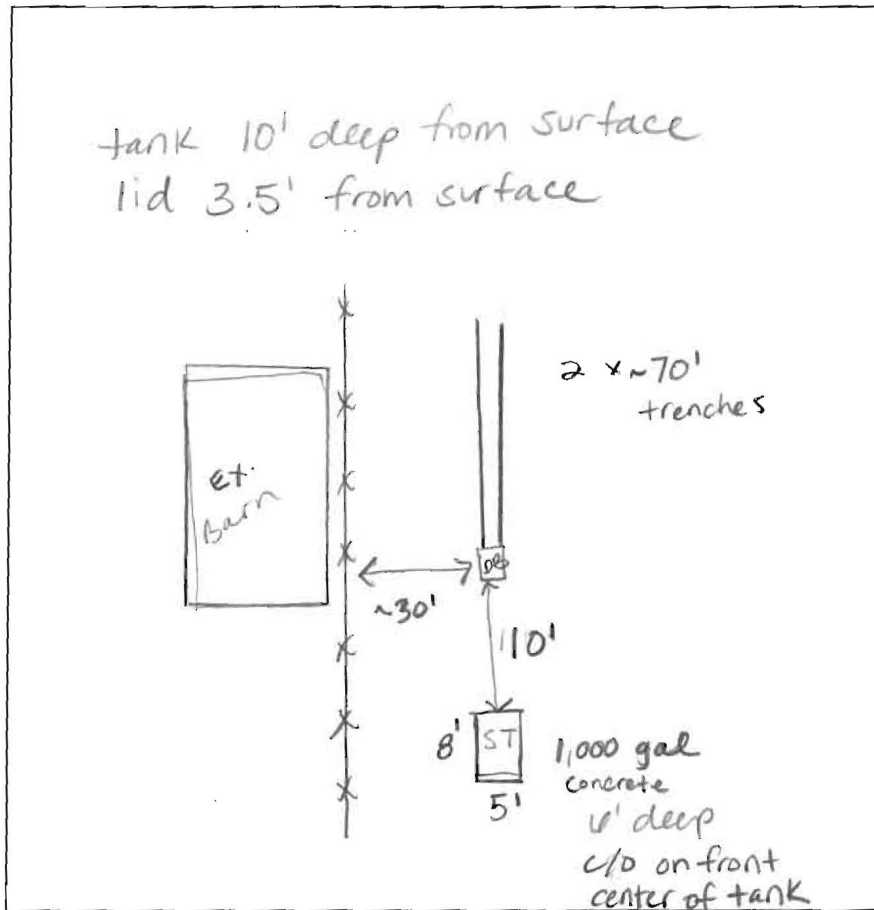 tank 10' deep from surface
lid 3.5' from surface
2 x ~70'
trenches
Barn
DB
~30'
110'
8'
ST
5'
1,000 gal
concrete
6' deep
c/o on front
center of tank